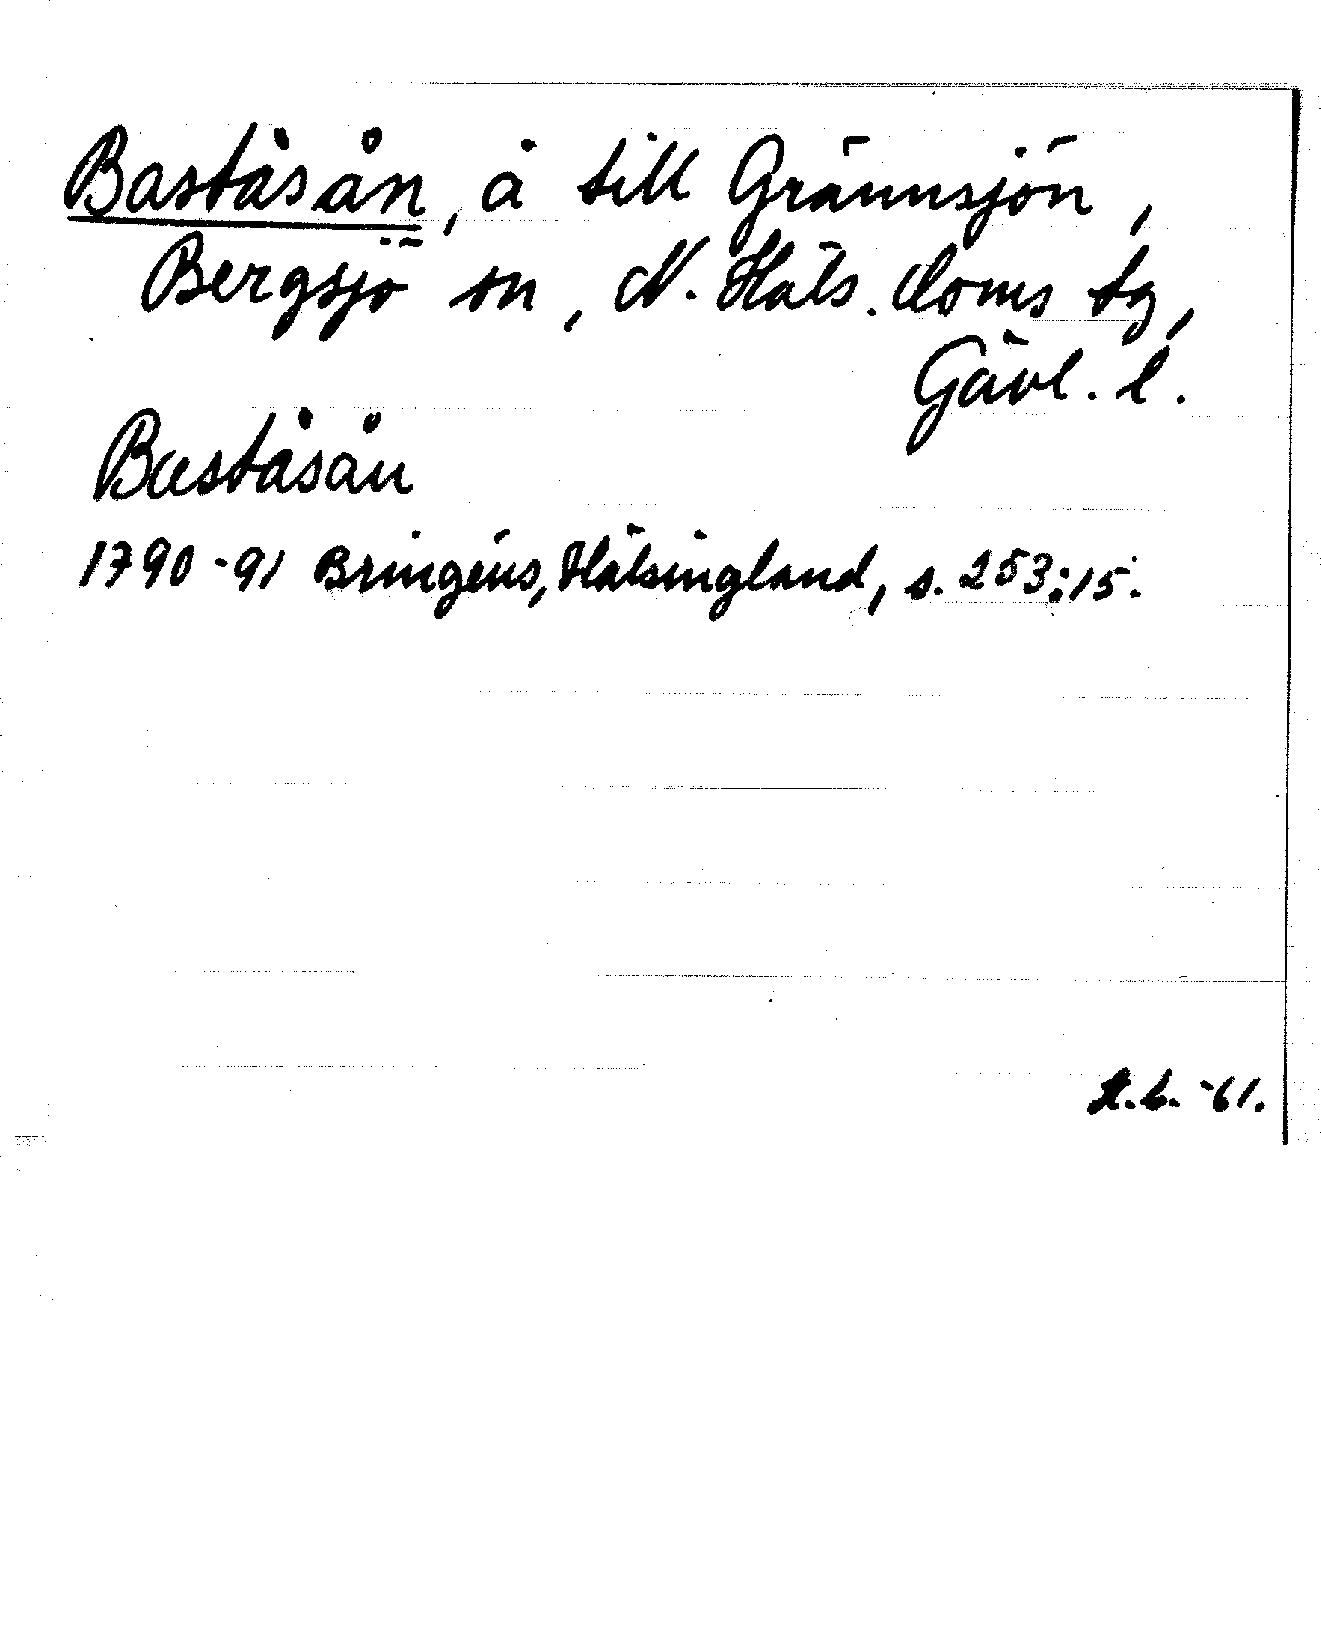 Baståsån, å till Grännsjön,
Bergsjö sn, N. Häls. doms tg,
Gävl. l.
Baståsån
1790-91 Bringéus, Hälsingland, s. 253:15.
-61.